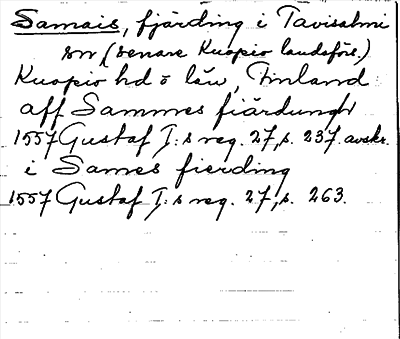 Samais, fjärding i Tavisalmi
sn (senare Kuopio landsförs.)
Kuopio hd o län, Finland
aff Sammes fiärdungh
1557 Gustaf I:s reg. 27, s. 237. avskr.
i Sames fierding
1557 Gustaf I:s reg. 27, s. 263.